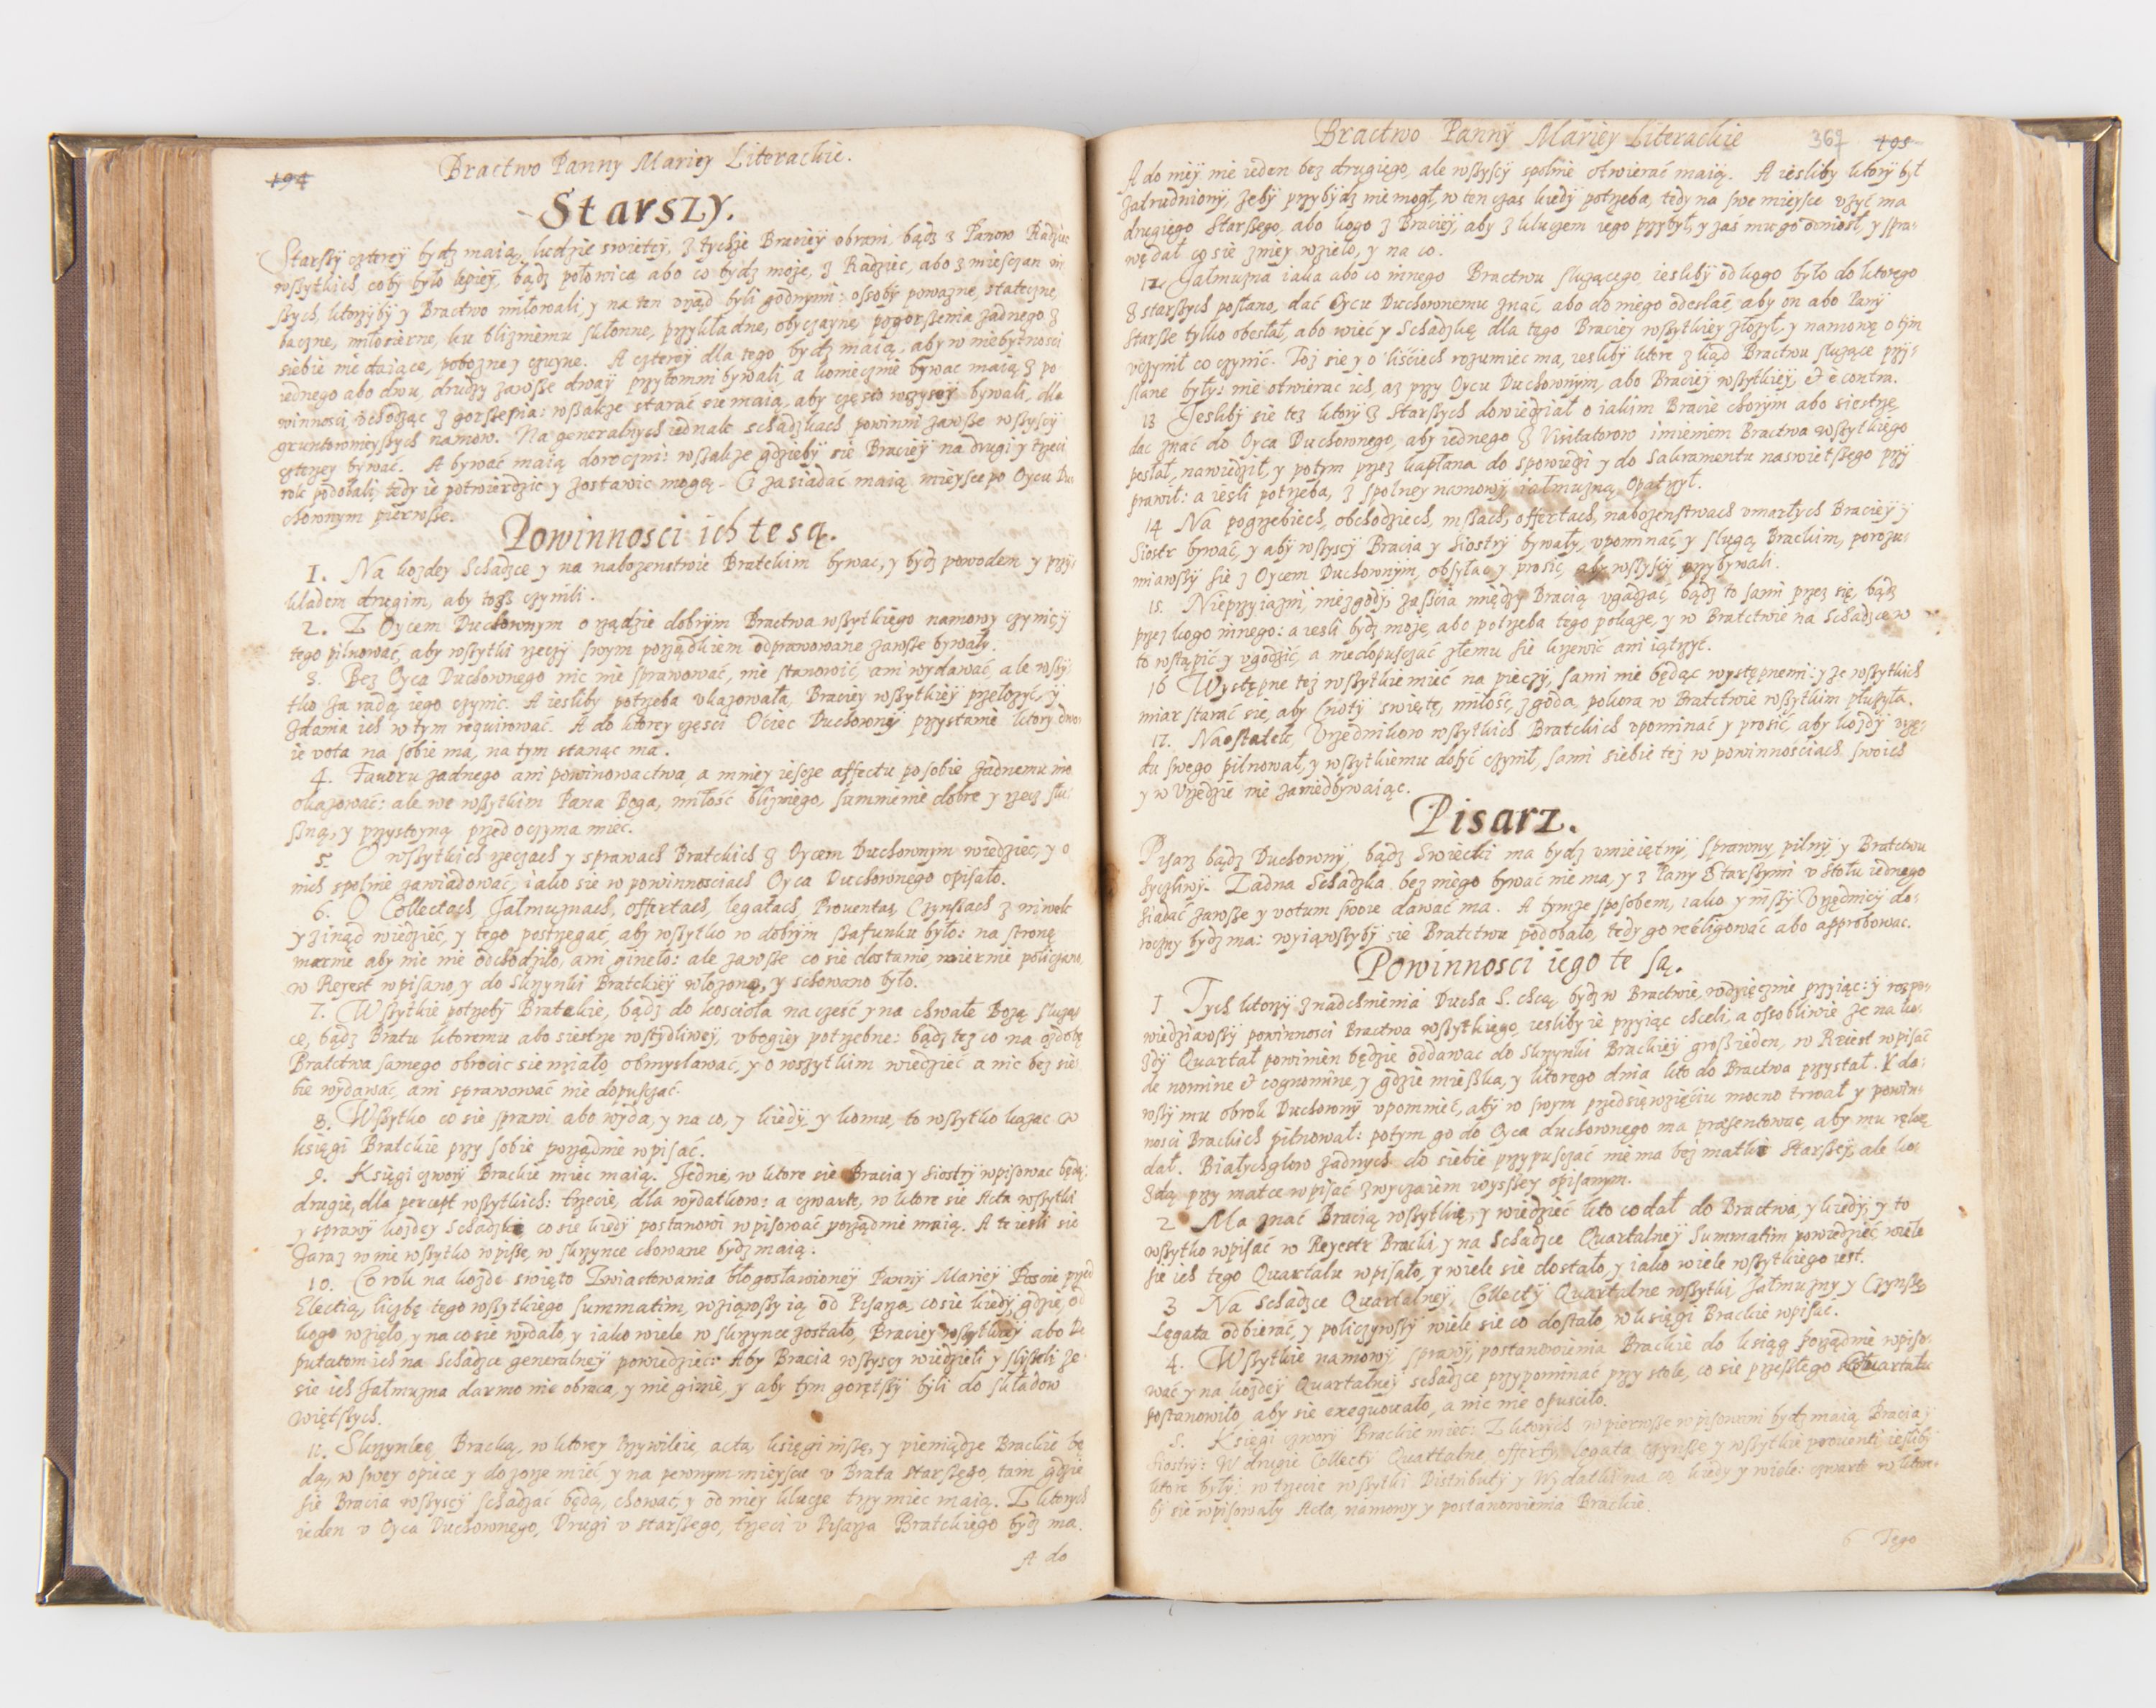 194
Bractwo Panny Mariey Literackie.
Starszy.
Starſzy czterey bydz maią, ludzie swietcy, z tychze Braciey obrani, bądz z Panow Radziec
wſzytkich, coby było lepiey, bądz połowica abo co bydz moze, z Radziec, abo z mieſczan
ſzych, ktorzyby y Bractwo miłowali, y na ten vrząd byli godnymi: oſsoby powazne, stateczne,
baczne, miłosierne, ku blizniemu skłonne, przykładne, obyczayne, pogorſzenia zadnego z
siebie nie daiące, pobozne y czuyne. A czterey dla tego bydz maią, aby w niebytnosci
iednego abo dwu, drudzy zawſze dway przytomni bywali, a koniecznie bywac maią z po
winnosci vchodząc z gorſzenia: wſzakze starać sie maią, aby często wszyscy bywali, dla
gruntownieyſzych namow. Na generalnych iednak schadzkach powinni zawſze wſzyscy
czterzey bywać. A bywać maią doroczni: wſzakze gdzieby sie Braciey na drugi y trzeci
rok podobali, tedy ie potwierdzic y zostawic mogą. Ci zasiadać maią mieysce po Oycu Du
chownym pierwſze.
Powinnosci ich te są.
1. Na kozdey Schadzce y na nabozenstwie Bratckim bywac, y bydz powodem y przy
kładem drugim, aby toſz czynili.
2. Z Oycem Duchownym o rządzie dobrym Bractwa wſzytkiego namowy czynić, y
tego pilnować, aby wſzytki rzeczy swym porządkiem odprawowane zawſze bywały.
3. Bez Oyca Duchownego nic nie sprawować, nie stanowić, ani wydawać, ale wſzy
tko za radą iego czynic. A iesliby potrzeba vkazowała, Braciey wſzytkiey przełozyc, y
zdania ich w tym requirować. A do ktorey częsci Ociec Duchowny przystanie ktory dwo
ie vota na sobie ma, na tym stanąc ma.
4. Favoru zadnego ani powinowactwa, a mniey ieſcze affectu po sobie zadnemu nie
okazować: ale we wſzytkim Pana Boga, miłość blizniego, summienie dobre y rzecz słu
ſzną, y przystoyną przed oczyma mieć.
5. O wſzytkich rzeczach y sprawach Bratckich z Oycem Duchownym wiedziec, y o
nich spolnie zawiadować, iako sie w powinnosciach Oyca Duchownego opisało.
6. O Collectach, Jałmuznach, offertach, legatach, Prouentas, Czynſzach z
y zinąd wiedzieć, y tego postrzegać, aby wſzytko w dobrym ſzafunku było: na stronę
marnie aby nic nie odchodziło, ani gineło: ale zawſze co sie dostanie, wiernie policzono,
w Reyest wpisano, y do skrzynki Bratckiey włozono, y schowano było.
7. Wſzytkie potrzeby Bratckie, bądz do kosciola na czesć y na chwałe Bozą sluzą
ce, bądz Bratu ktoremu abo siestrze wstydliwey, vbogiey potrzebne: bądz tez co na ozdobę
Bratctwa samego obrocic sie miało, obmyslawać, y o wszytkim wiedzieć a nic bez sie
bie wydawać, ani sprawować nie dopuſczać.
8. Wſzytko co sie sprawi abo wyda, y na co, y kiedy, y komu, to wſzytko kazac w
księgi Bratckie przy sobie porządnie wpisać.
9. Księgi czwory Brackie miec maią. Jedne, w ktore sie Bracia y Siostry wpisowac będą:
drugie, dla percept wſzytkich: trzecie, dla wydatkow: a czwarte, w ktore sie Acta wſzytki
y sprawy kozdey Schadzki, co sie kiedy postanowi wpisować porządnie maią. A te iesli sie
zaraz w nie wſzytko wpisze, w skrzynce chowane bydz maią.
10. Co rok na kozde swięto Zwiastowania błogosławioney Panny Mariey Prosie przed
Electią, liczbę tego wſzytkiego summatim, wziąwſzy ią od Pisarza, co sie kiedy, gdzie, od
kogo wzięło, y na co sie wydało, y iako wiele w skrzynce zostało, Braciey wſzytkiey abo De
putatom ich na Schadzce generalney powiedziec: Aby Bracia wſzyscy wiedzieli y slyſzeli ze
sie ich Jałmuzna darmo nie obraca, y nie ginie, y aby tym gorętſzy byli do składow
więtſzych.
11. Skrzynkę Bracką, w ktorey Przywileie, acta, księgi inſze, y pieniądze Brackie bę
dą, w swey opiece y dozorze mieć, y na pewnym mieyscu v Brata starſzego, tam gdzie
sie Bracia wſzyscy schadzać będą, chować, y od niey klucze trzy miec maią. Z ktorych
ieden v Oyca Duchownego, Drugi v starſzego, trzeci v Pisarza Bratckiego bydz ma.
A do
Bractwo Panny Mariey Literackie
367 195
A do niey nie ieden bez drugiego, ale wſzyscy spolnie otwierać maią. A iesliby ktory był
zatrudniony, zeby przybydz nie mogł, w ten czas kiedy potrzeba, tedy na swe mieysce vzyć ma
drugiego Starſzego, abo kogo z Braciey, aby z kluczem iego przybył, y zaś mu go odniosł, y spra
wę dał co sie z niey wzieło, y na co.
12. Jałmuzna iaka abo co innego Bractwu sluzącego, iesliby od kogo było do ktorego
z starſzych posłano, dać Oycu Duchownemu znąć, abo do niego odesłać, aby on abo Pany
starſze tylko obesłał, abo wiec y Schadzkę dla tego Braciey wſzytkiey złozył, y namowę o tym
vczynił co czynić. Toz sie y o liściech rozumiec ma, iesliby ktore z kąd Bractwu sluzące przy
słane były: nie otwierac ich, az przy Oycu Duchownym, abo Braciey wſzytkiey, & è contra.
13 Jesliby sie tez ktory z Starſzych dowiedział o iakim Bracie chorym abo siestrze,
dac znać do Oyca Duchownego, aby iednego z Visitatorow imieniem Bractwa wſzytkiego
posłał, nawiedził, y potym przez kapłana do spowiedzi y do Sakramentu naswietſzego przy
prawił: a iesli potrzeba, z spolney namowy iałmuzną opatrzył.
14 Na pogrzebiech, obchodziech, mſzach, offertach, nabozenstwach vmarłych Braciey y
Siostr bywać, y aby wſzyscy Bracia y Siostry bywały, vpominać, y slugą Brackim, porozu
miawſzy sie z Oycem Duchownym, obsyłac y prosić, aby wſzyscy przybywali.
15. Nieprzyiazni, niezgody, zaſścia między Bracią vgadzać, bądz to sami przez się, bądz
przez kogo innego: a iesli bydz moze, abo potrzeba tego pokaze, y w Bratctwie na Schadzce w
to wstąpić y vgodzić, a niedopuſczać złemu sie krzewić ani iątrzyć.
16 Występne tez wſzytkie mieć na pieczy, sami nie będąc występnemi: y ze wſzytkich
miar starać sie, aby cnoty swięte, miłość, zgoda, pokora w Bratctwie wſzytkim płuzyła.
17. Naostatek, Vrzednikow wſzytkich Bratckich vpominać y prosić, aby kozdy vrzę
du swego pilnował, y wſzytkiemu dosyć czynił, sami siebie tez w powinnościach swoich
y w Vrzędzie nie zaniedbywaiąc.
Pisarz.
Pisarz bądz Duchowny, bądz Swiecki ma bydz vmieiętny, sprawny, pilny y Bratctwu
zyczliwy. Zadna Schadzka bez niego bywać nie ma, y z Pany Starſzymi v stołu iednego
siadać zawſze y votum swoie dawać ma. A tymze sposobem, iako y inſzy Vrzędnicy do
roczny bydz ma: wyiąwſzyby sie Bratctwu podobało, tedy go reeligować abo approbowac.
Powinnosci iego te są.
1 Tych ktorzy z nadchnienia Ducha S. chcą bydz w Bractwie, wdzięcznie przyiąc: y rozpo
wiedziawſzy powinnosci Bractwa wſzytkiego, iesliby ie przyiąc chceli, a oſsobliwie ze na ko
zdy Quartał powinien będzie oddawac do Skrzynki Brackiey groſz ieden, w Reiest wpisać
de nomine & cognomine, y gdzie mieſzka, y ktorego dnia kto do Bractwa przystał. Y da
wſzy mu obrok Duchowny vpomnieć, aby w swym przedsięwzięciu mocno trwał y powin
nosci Brackich pilnował: potym go do Oyca duchownego ma praesentowac, aby mu rękę
dał. Białychgłow zadnych do siebie przypuſczać nie ma bez matki Starſzey, ale ko
zdą przy matce wpisać zwyczaiem wysſzey opisanym.
2 Ma znać Bracią wſzytkię, y wiedzieć kto co dał do Bractwa, y kiedy, y to
wſzytko wpisać w Reyestr Bracki, y na Schadzce Quartalney Summatim powiedzieć, wiele
sie ich tego Quartału wpisało, y wiele sie dostało, y iako wiele wſzytkiego iest.
3 Na Schadzce Quartalney, Collecty Quartalne wſzytki Jałmuzny y Czynſze
Legata odbierać, y policzywſzy wiele sie co dostało, w księgi Brackie wpisać.
4. Wſzytkie namowy sprawy, postanowienia Brackie do ksiąg porządnie wpiso
wać, y na kozdey Quartalney schadzce przypominać przy stole, co sie przeſzłego Quartału
postanowiło, aby sie exequowało, a nic nie opuscilo.
5. Księgi czwory Brackie mieć: Z ktorych w pierwſze wpisowani bydz maią Bracia y
Siostry: W drugie Collecty Quartalne, offerty, legata czynſze y wſzytkie prouenti iesliby
ktore były: w trzecie wſzytki Distributy y Wydatki na co kiedy y wiele: czwarte w ktore
by sie wpisowały Acta, namowy y postanowienia Brackie.
6 Tego